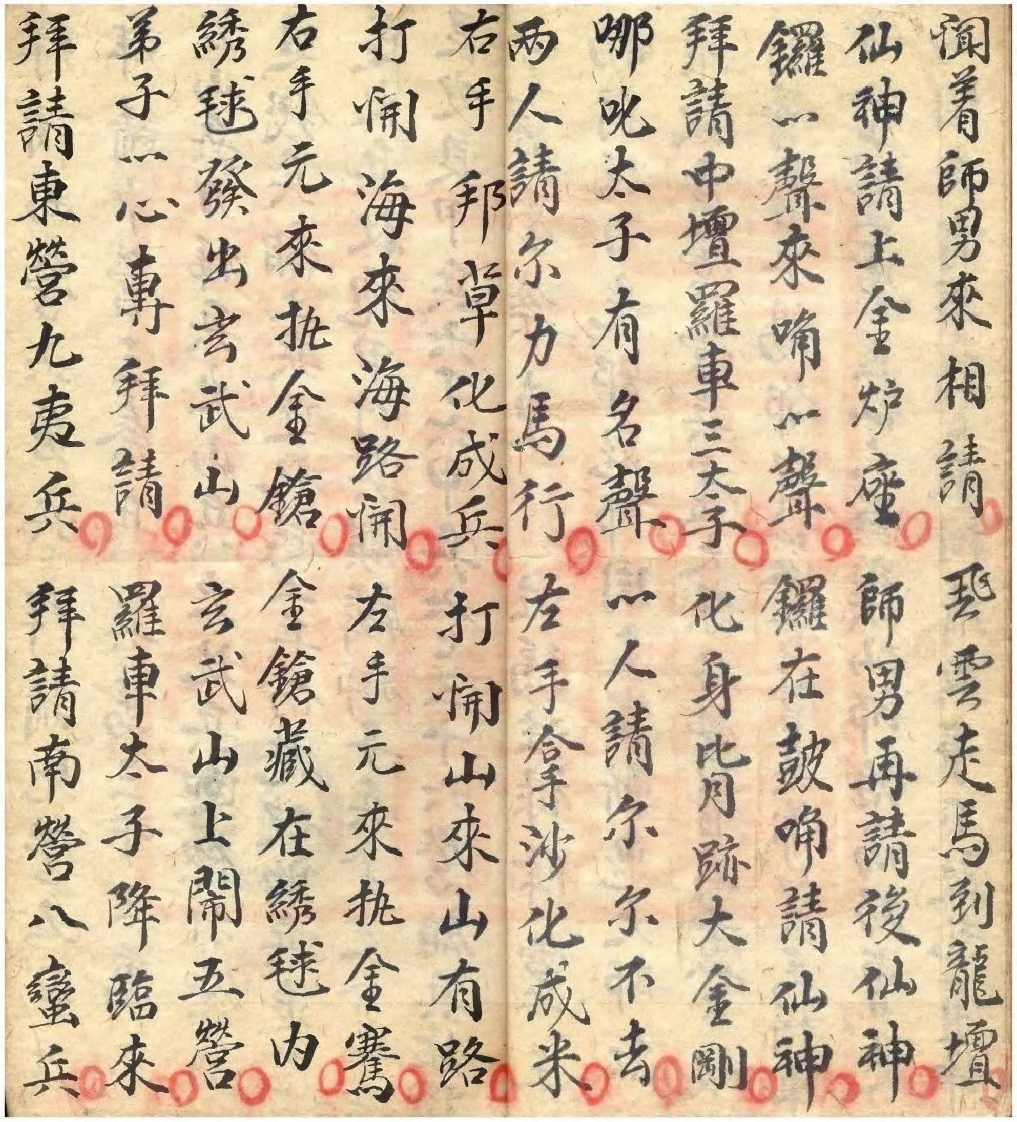 聞着師男來相請　飛雲走馬到龍壇
仙神請上金炉座　師男再請後仙神
鑼一聲來哨一聲　鑼在鼓哨請仙神
拜請中壇羅車三太子　化身比月跡大金剛
哪吒太子有名聲　一人請尔尔不去
兩人請尔力馬行　左手拿沙化成米
右手邦草化成兵　打開山來山有路
打開海來海路開　左手元來执金騫
右手元來执金鎗　金鎗藏在綉毬內
綉毬發出玄武山　玄武山上鬧五營
弟子一心專拜請　羅車太子降臨來
拜請東營九夷兵　拜請南營八蠻兵